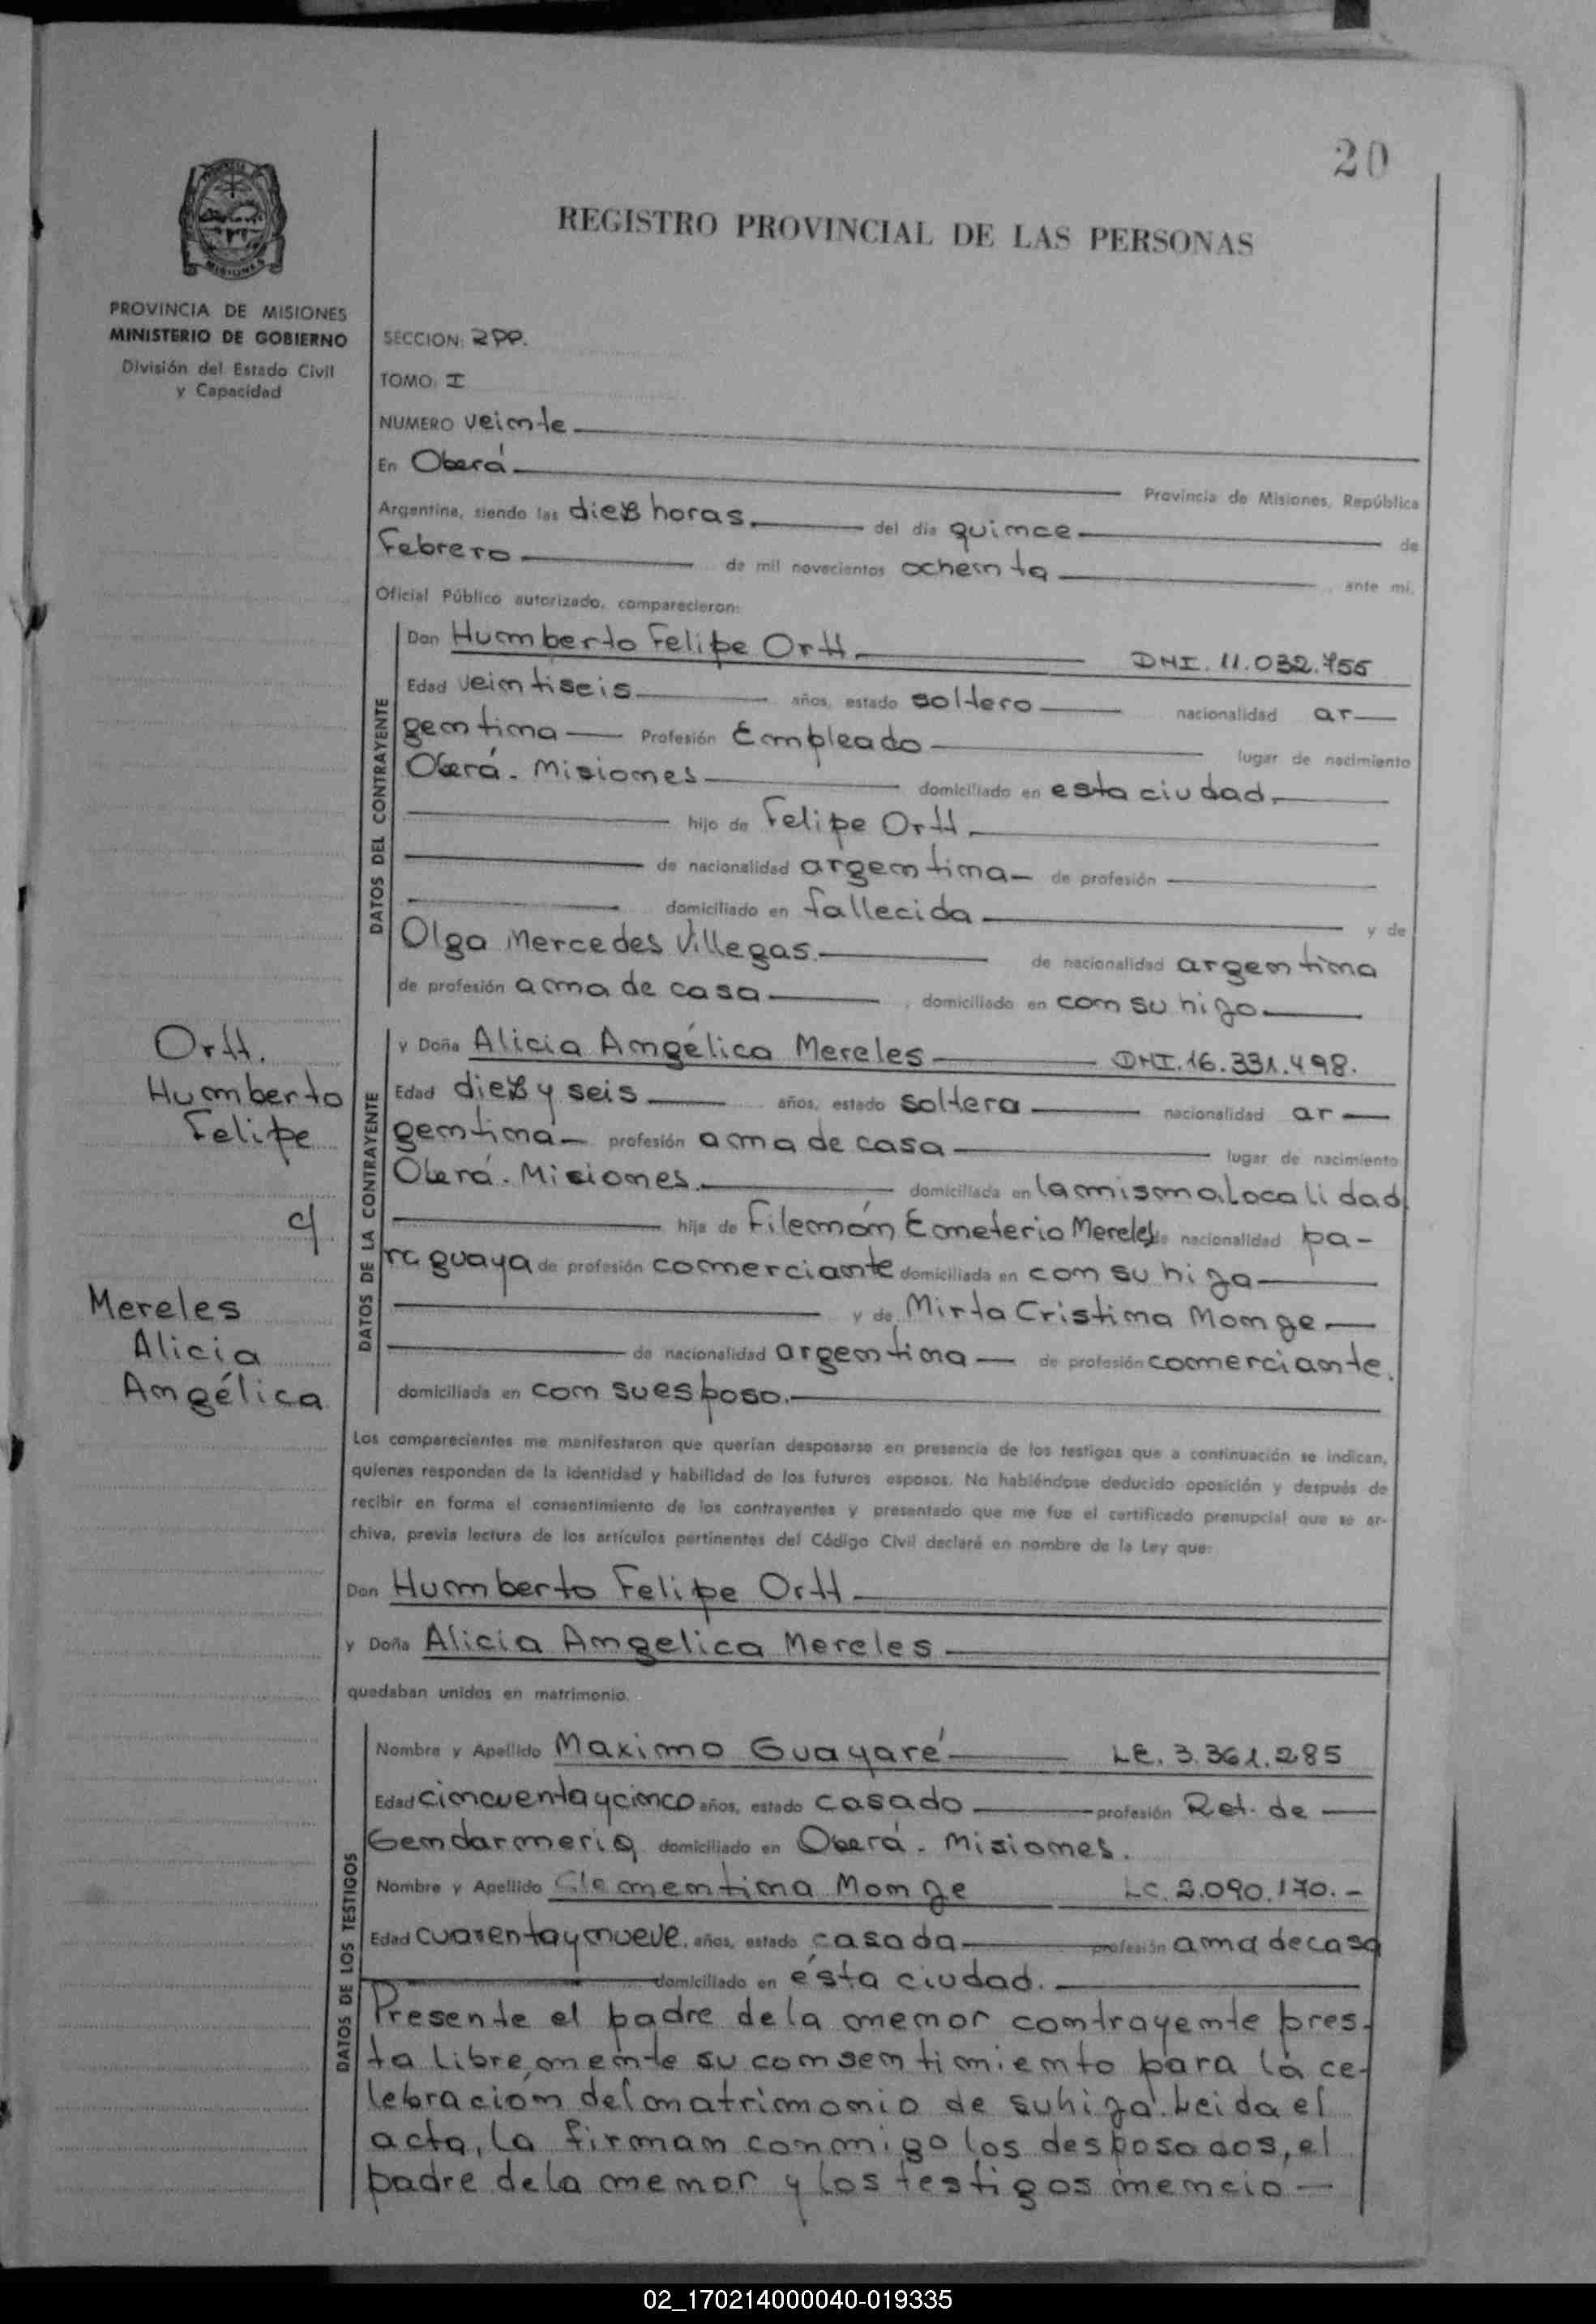 20
REGISTRO PROVINCIAL DE LAS PERSONAS
PROVINCIA DE MISIONES
MINISTERIO DE GOBIERNO
División del Estado Civil
y Capacidad
SECCION: 2PP.
TOMO: I
NUMERO veinte
En Oberá Provincia de Misiones, República
Argentina, siendo las diez horas, del día quince de
Febrero de mil novecientos ochenta, ante mi,
Oficial Público autorizado, comparecieron:
DATOS DEL CONTRAYENTE
Don Humberto Felipe Ortt. DNI. 11.032.755
Edad veintiseis años, estado soltero nacionalidad ar-
gentina Profesión Empleado lugar de nacimiento
Oberá. Misiones domiciliado en esta ciudad,
hijo de Felipe Ortt,
de nacionalidad argentina de profesión
domiciliado en fallecida y de
Olga Mercedes Villegas. de nacionalidad argentina
de profesión ama de casa, domiciliado en con su hijo.
Ortt.
Humberto
Felipe
c/
Mereles
Alicia
Angélica
DATOS DE LA CONTRAYENTE
y Doña Alicia Angélica Mereles DNI. 16.331.498.
Edad diez y seis años, estado soltera nacionalidad ar
gentina profesión ama de casa lugar de nacimiento
Oberá. Misiones. domiciliada en la misma Localidad
hija de Filemón Emeterio Mereles de nacionalidad pa-
raguaya de profesión comerciante domiciliada en con su hija
y de Mirta Cristina Monge
de nacionalidad argentina de profesión comerciante.
domiciliada en con su esposo.
Los comparecientes me manifestaron que querían desposarse en presencia de los testigos que a continuación se indican,
quienes responden de la identidad y habilidad de los futuros esposos. No habiéndose deducido oposición y después de
recibir en forma el consentimiento de los contrayentes y presentado que me fue el certificado prenupcial que se ar-
chiva, previa lectura de los artículos pertinentes del Código Civil declaré en nombre de la Ley que:
Don Humberto Felipe Ortt
y Doña Alicia Angelica Mereles
quedaban unidos en matrimonio.
DATOS DE LOS TESTIGOS
Nombre y Apellido Maximo Guayaré LE. 3.361.285
Edad cincuenta y cinco años, estado casado profesión Ret. de
Gendarmeria domiciliado en Oberá. Misiones.
Nombre y Apellido Clementina Monge LC. 2.090.170.-
Edad cuarenta y nueve, años, estado casada profesión ama de casa
domiciliado en ésta ciudad.
Presente el padre de la menor contrayente pres-
ta libremente su consentimiento para la ce-
lebración del matrimonio de su hija. Leida el
acta, la firman conmigo los desposados, el
padre de la menor y los testigos mencio-
02_170214000040-019335